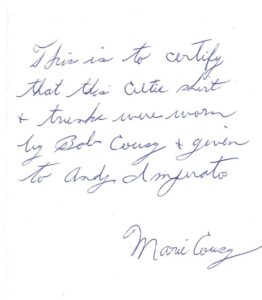 This is to certify
that this Celtic shirt
& trunks were worn
by Bob Cousy & given
to Andy Imperato
Marie Cousy